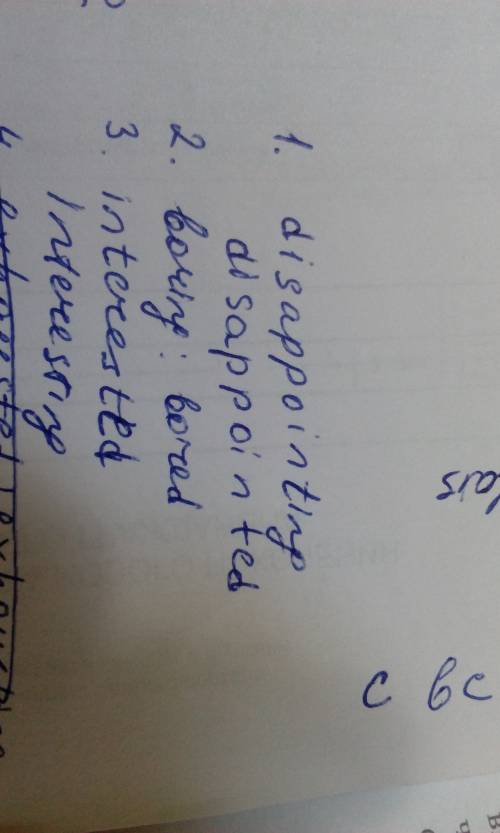 1. disappointing
disappointed
2. boring: bored
3. interested
Interesting
4. exhausted, exhausting
c bc